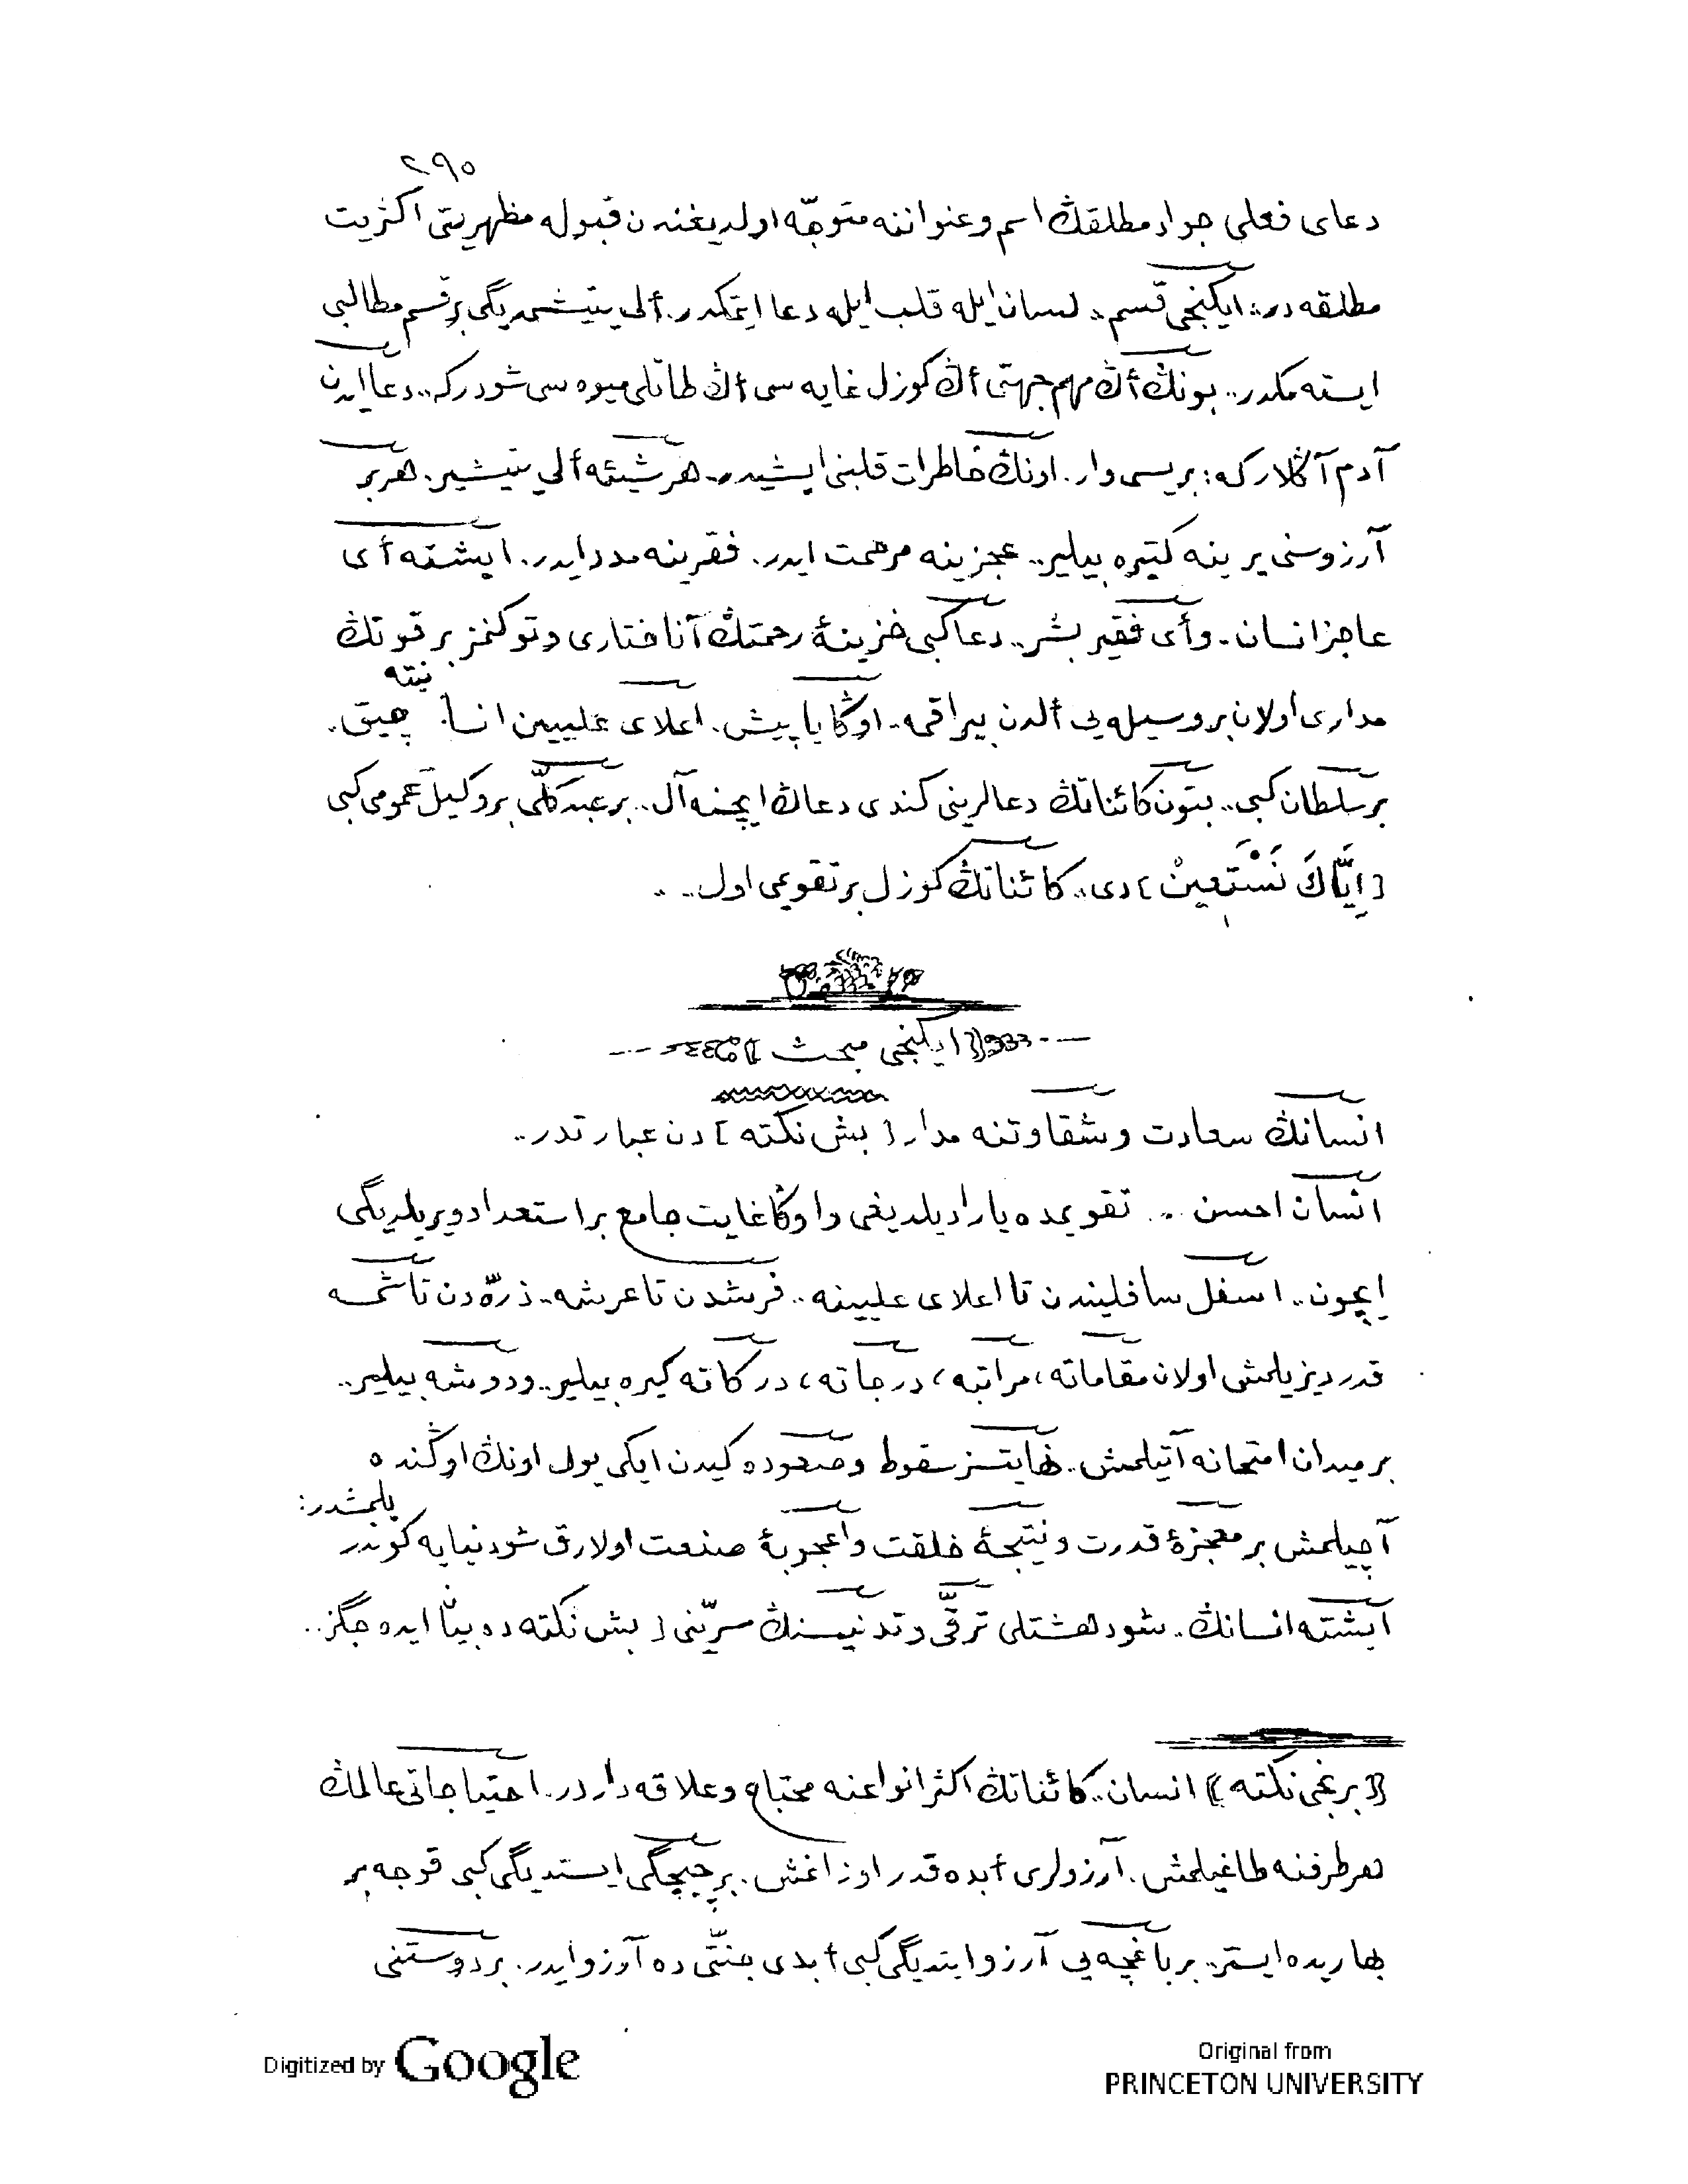 ٢٩٠
دعای فعلی جواد مطلقڭ اسم و عنواننه متوجّه اولدیغندن قبوله مظهریتی اکثریت
مطلقه در: ایکنجی قسم.. لسان ایله قلب ایله دعا ایتمکدر. ألی یتیشمدیگی بر قسم مطالبی
ایسته مکدر.. بونڭ أڭ مهم جهتی أڭ کوزل غایه سی أڭ طاتلی میوه سی شودرکه.. دعا ایدن
آدم آڭلارکه: بریسی وار. اونڭ خاطرات قلبنی ایشیدر.. هر شیئه ألی یتیشیر. هربر
آرزوسنی یرینه کتیره بیلیر.. عجزینه مرحمت ایدر. فقرینه مدد ایدر. ایشته أی
عاجز انسان.. و أی فقیر بشر.. دعا کبی خزینۀ رحمتڭ آناختاری و توکنمز بر قوتڭ
مداری اولان بر وسیله یی ألدن بیراقمه.. اوڭا یاپیش. اعلای علییین انسانیته چیق.
بر سلطان کبی.. بتون کائناتڭ دعالرینی کندی دعاڭ ایچنه آل.. بر عبد کلّی بر وکیل عمومی کبی
[ اِيَّاكَ نَسْتَعِينْ ] دی.. کائناتڭ کوزل بر تقویمی اول...
ایکنجی مبحث
انسانڭ سعادت و شقاوتنه مدار [ بش نکته ] دن عبارتدر..
انسان احسن تقویمده یارادیلدیغی و اوڭا غایت جامع بر استعداد ویریلدیگی
ایچون.. اسفل سافلیندن تا اعلای علیینه.. فرشدن تا عرشه.. ذرّه دن تا شمسه
قدر دیزیلمش اولان مقاماته، مراتبه، درجاته، درکاته کیره بیلیر.. و دوشه بیلیر..
بر میدان امتحانه آتیلمش.. نهایتسز سقوط و صعوده کیدن ایکی یول اونڭ اوڭنده
آچیلمش بر معجزۀ قدرت و نتیجۀ خلقت و اعجوبۀ صنعت اولارق شو دنیایه کوندریلمشدر:
ایشته انسانڭ.. شو دهشتلی ترقّی و تدنیسنڭ سرّینی [ بش نکته ده بیان ایده جگز..
[ برنجی نکته ] انسان.. کائناتڭ اکثر انواعنه محتاج و علاقه داردر. احتیاجاتی عالمڭ
هر طرفنه طاغیلمش. آرزولری أبده قدر اوزانمش. بر چیچگی ایستدیگی کبی قوجه بر
بهاریده ایستر. بر باغچه یی آرزو ایتدیگی کبی أبدی جنّتی ده آرزو ایدر. بر دوستنی
Digitized by Google
Original from
PRINCETON UNIVERSITY